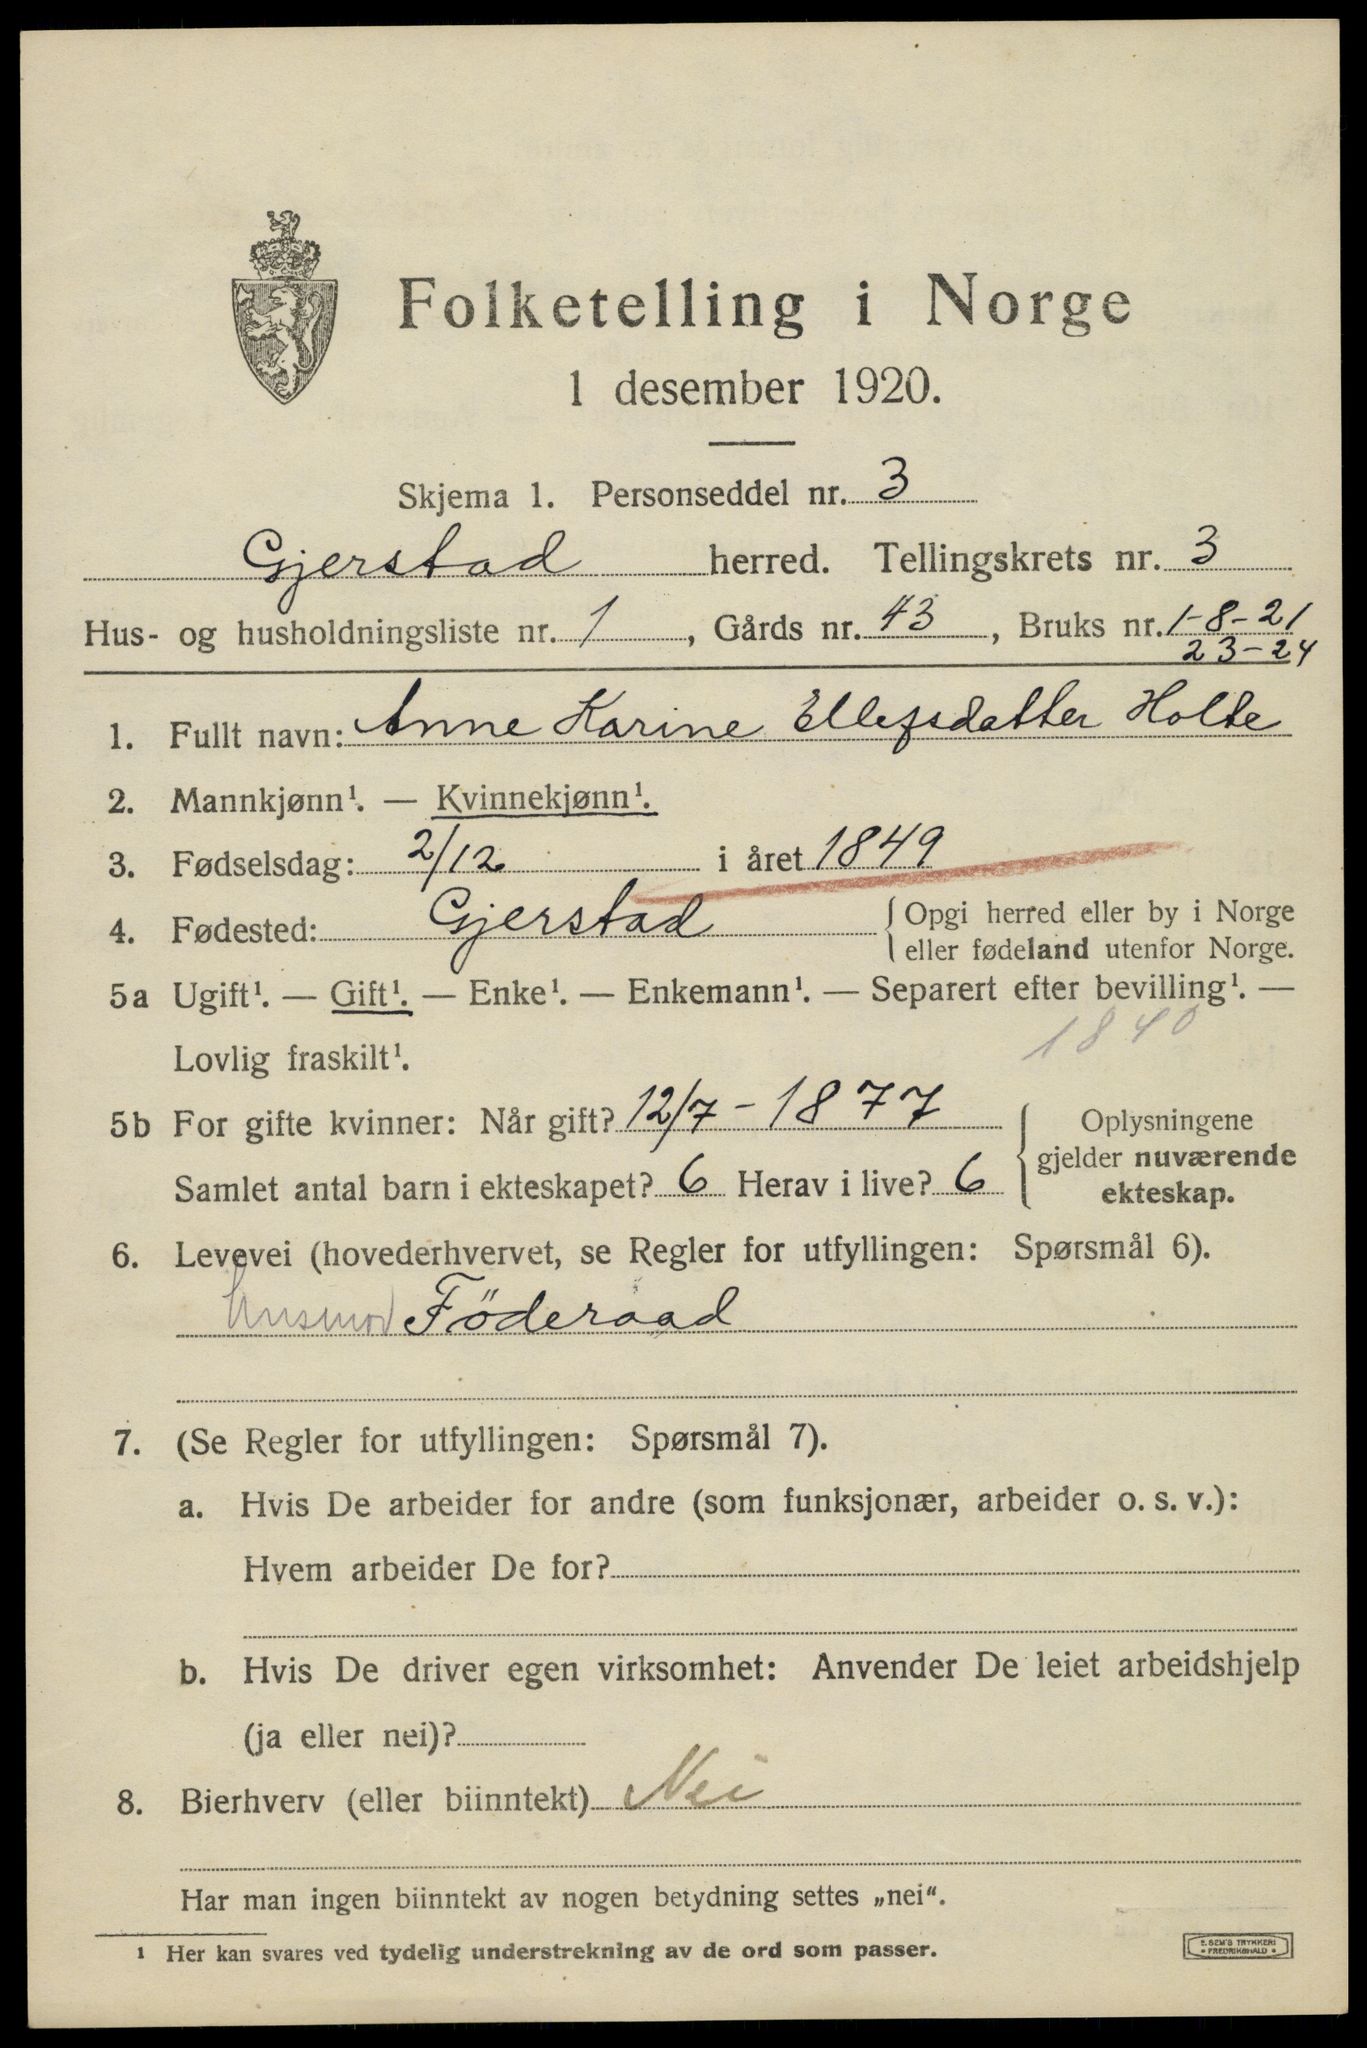 Folketelling i Norge
1 desember 1920.
Skjema 1. Personseddel nr. 3
Gjerstad herred. Tellingskrets nr. 3
Hus- og husholdningsliste nr. 1, Gårds nr. 43, Bruks nr. 1-8-21
23-24
1. Fullt navn: Anne Karine Ellefsdatter Holte
2. Mannkjønn¹. — Kvinnekjønn¹.
3. Fødselsdag: 2/12 i året 1849
4. Fødested: Gjerstad { Opgi herred eller by i Norge
eller fødeland utenfor Norge.
5a Ugift¹. — Gift¹. — Enke¹. — Enkemann¹. — Separert efter bevilling¹. —
1840
Lovlig fraskilt¹.
5b For gifte kvinner: Når gift? 12/7 - 1877 { Oplysningene
gjelder nuværende
Samlet antal barn i ekteskapet? 6 Herav i live? 6 ekteskap.
6. Levevei (hovederhvervet, se Regler for utfyllingen: Spørsmål 6).
Husmor Föderaad
7. (Se Regler for utfyllingen: Spørsmål 7).
a. Hvis De arbeider for andre (som funksjonær, arbeider o. s. v.):
Hvem arbeider De for?
b. Hvis De driver egen virksomhet: Anvender De leiet arbeidshjelp
(ja eller nei)?
8. Bierhverv (eller biinntekt) Nei
Har man ingen biinntekt av nogen betydning settes „nei“.
1 Her kan svares ved tydelig understrekning av de ord som passer.
E. SEM'S TRYKKERI
FREDRIKSHALD